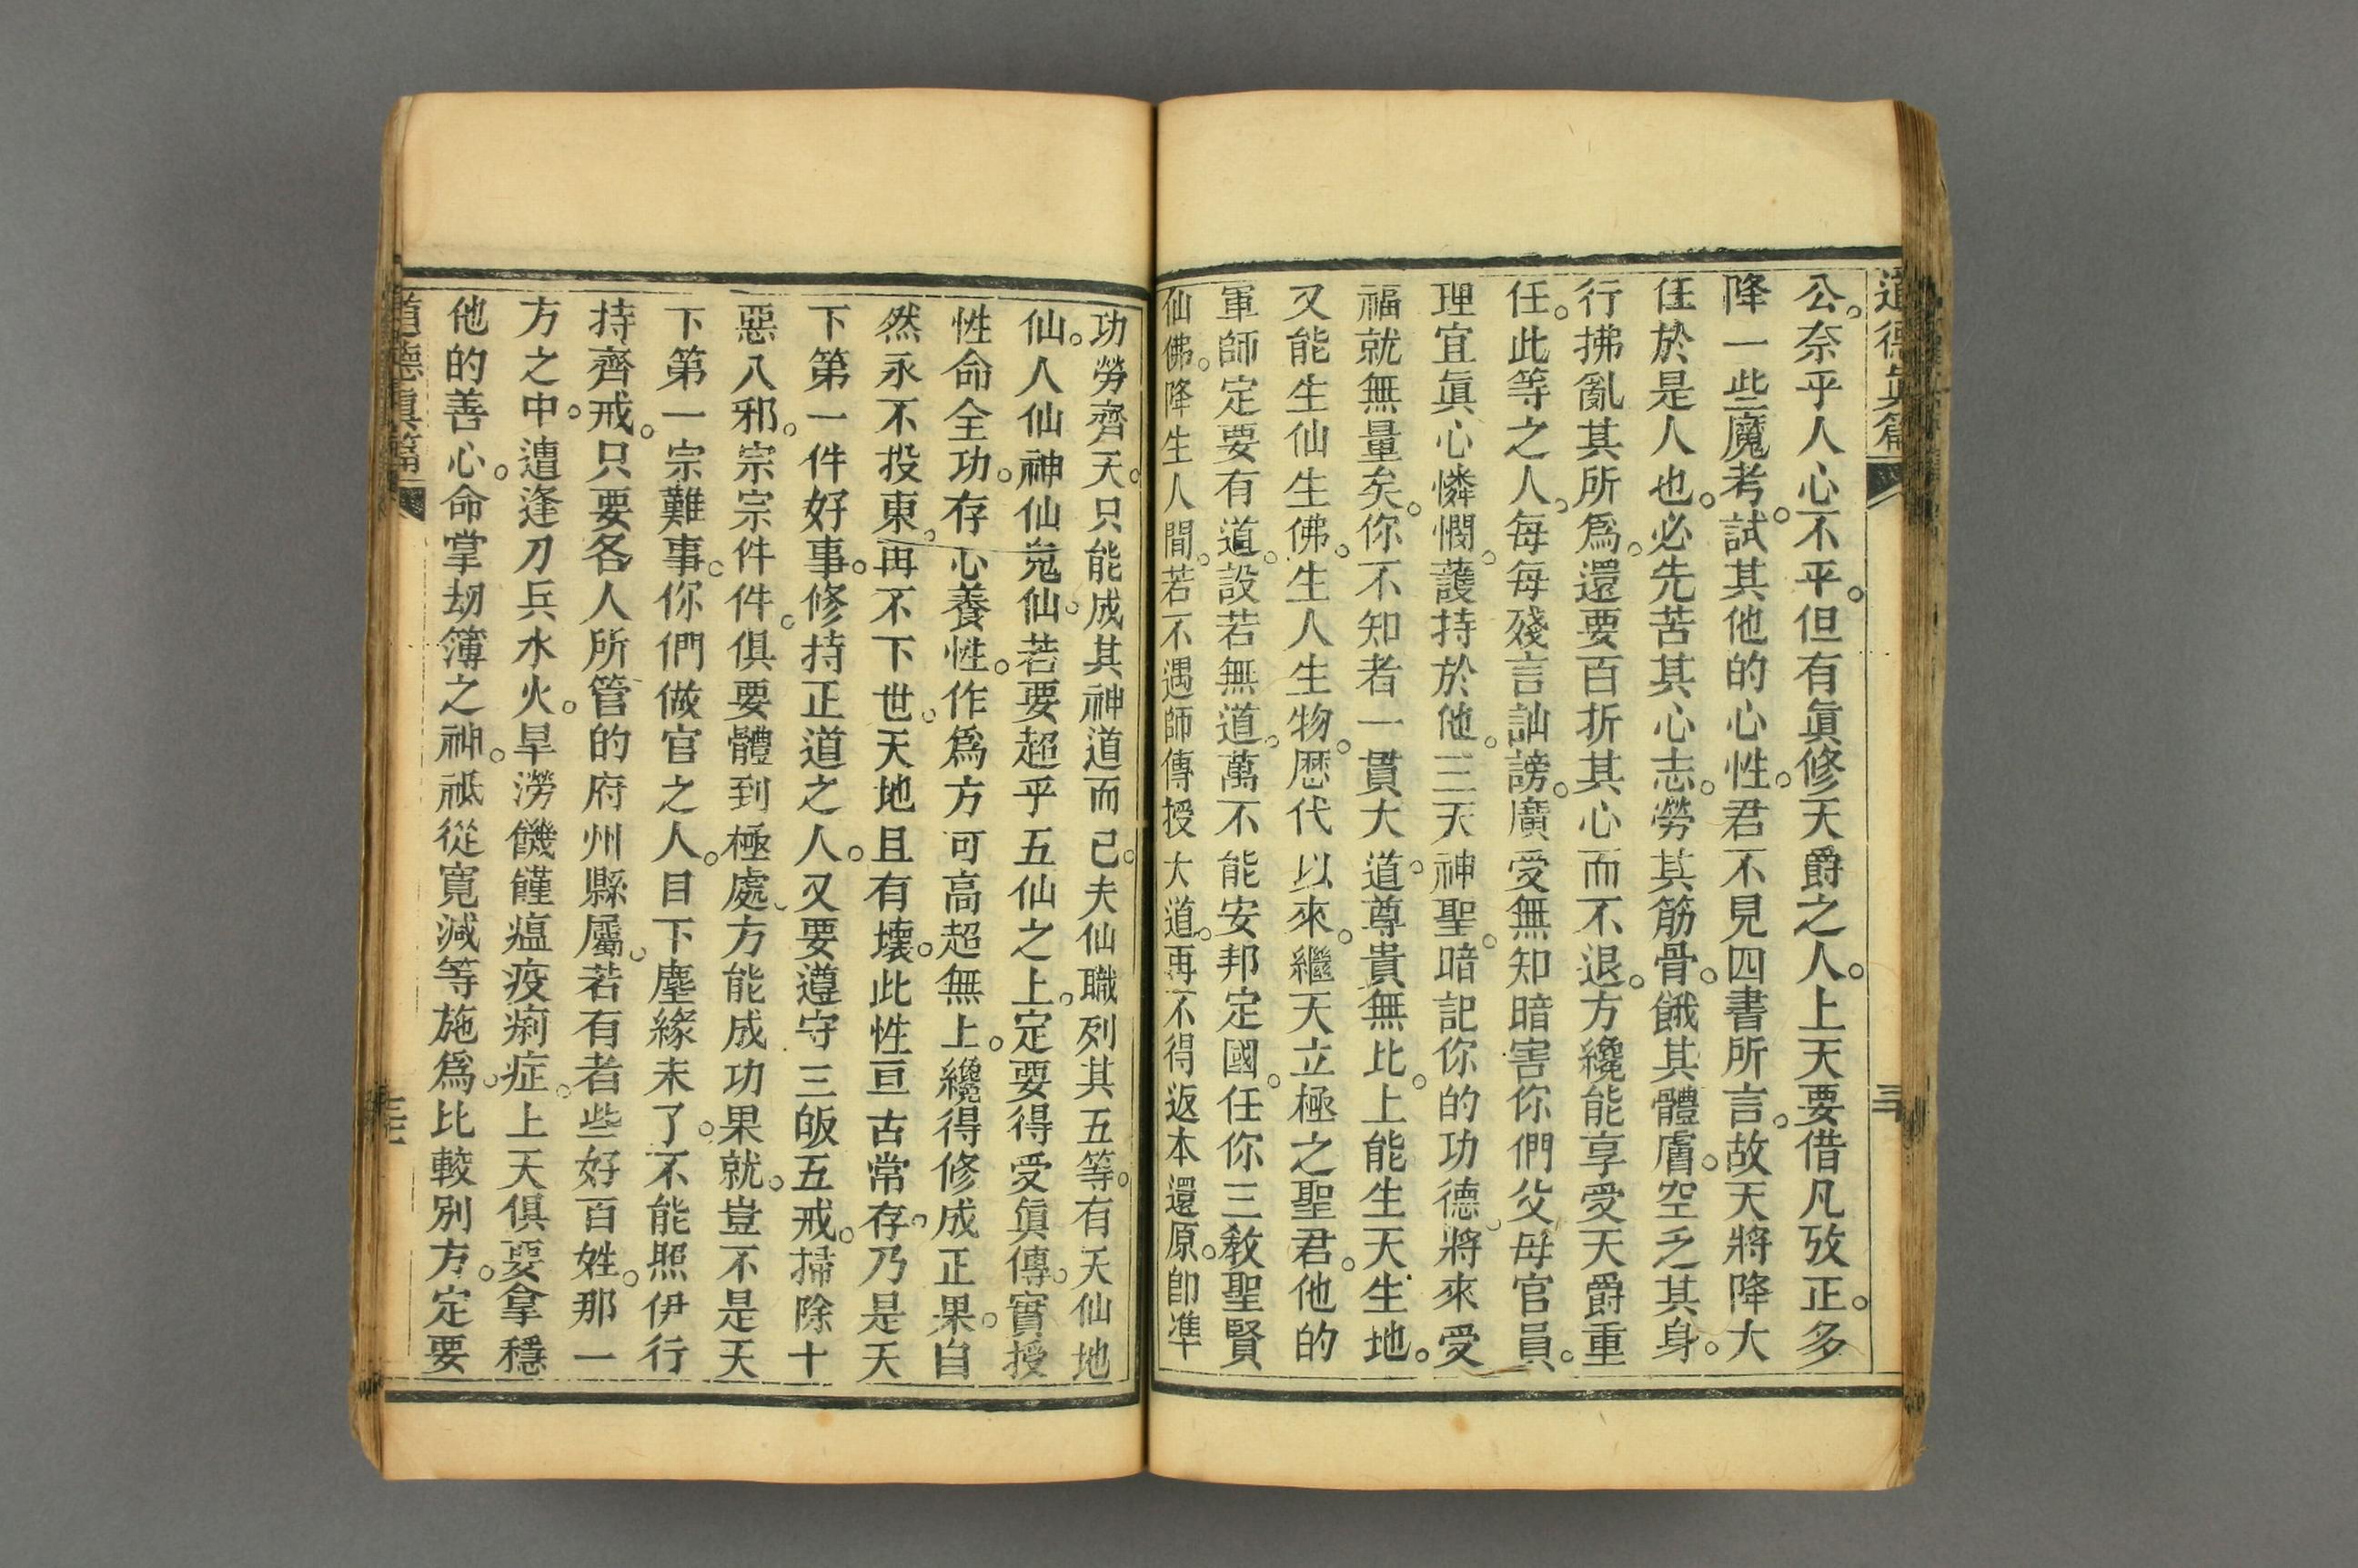 道德眞篇
公。奈乎人心不平。但有眞修天爵之人。上天要借凡攷正。多
降一些魔考。試其他的心性。君不見四書所言。故天將降大
任於是人也。必先苦其心志。勞其筋骨。餓其體膚。空乏其身。
行拂亂其所爲。還要百折其心而不退。方纔能享受天爵重
任。此等之人。每每殘言訕謗。廣受無知暗害你們父母官員。
理宜眞心憐憫。護持於他。三天神聖。暗記你的功德。將來受
福就無量矣。你不知者一貫大道。尊貴無比。上能生天生地。
又能生仙生佛。生人生物。歷代以來。繼天立極之聖君。他的
軍師定要有道。設若無道。萬不能安邦定國。任你三敎聖賢
仙佛。降生人間。若不遇師傳授大道。再不得返本還原。卽準
功勞齊天。只能成其神道而已。夫仙職列其五等。有天仙地
仙。人仙神仙鬼仙。若要超乎五仙之上。定要得受眞傳。實授
性命全功。存心養性。作爲方可高超無上。纔得修成正果。自
然永不投東。再不下世。天地且有壞。此性亘古常存。乃是天
下第一件好事。修持正道之人。又要遵守三皈五戒。掃除十
惡八邪。宗宗件件。俱要體到極處。方能成功果就。豈不是天
下第一宗難事。你們做官之人。目下塵緣未了。不能照伊行
持齊戒。只要各人所管的府州縣屬。若有者些好百姓。那一
方之中。遭逢刀兵水火。旱澇饑饉瘟疫痢症。上天俱要拿穩
他的善心。命掌劫簿之神。祗從寬減等施爲。比較別方。定要
道德眞篇